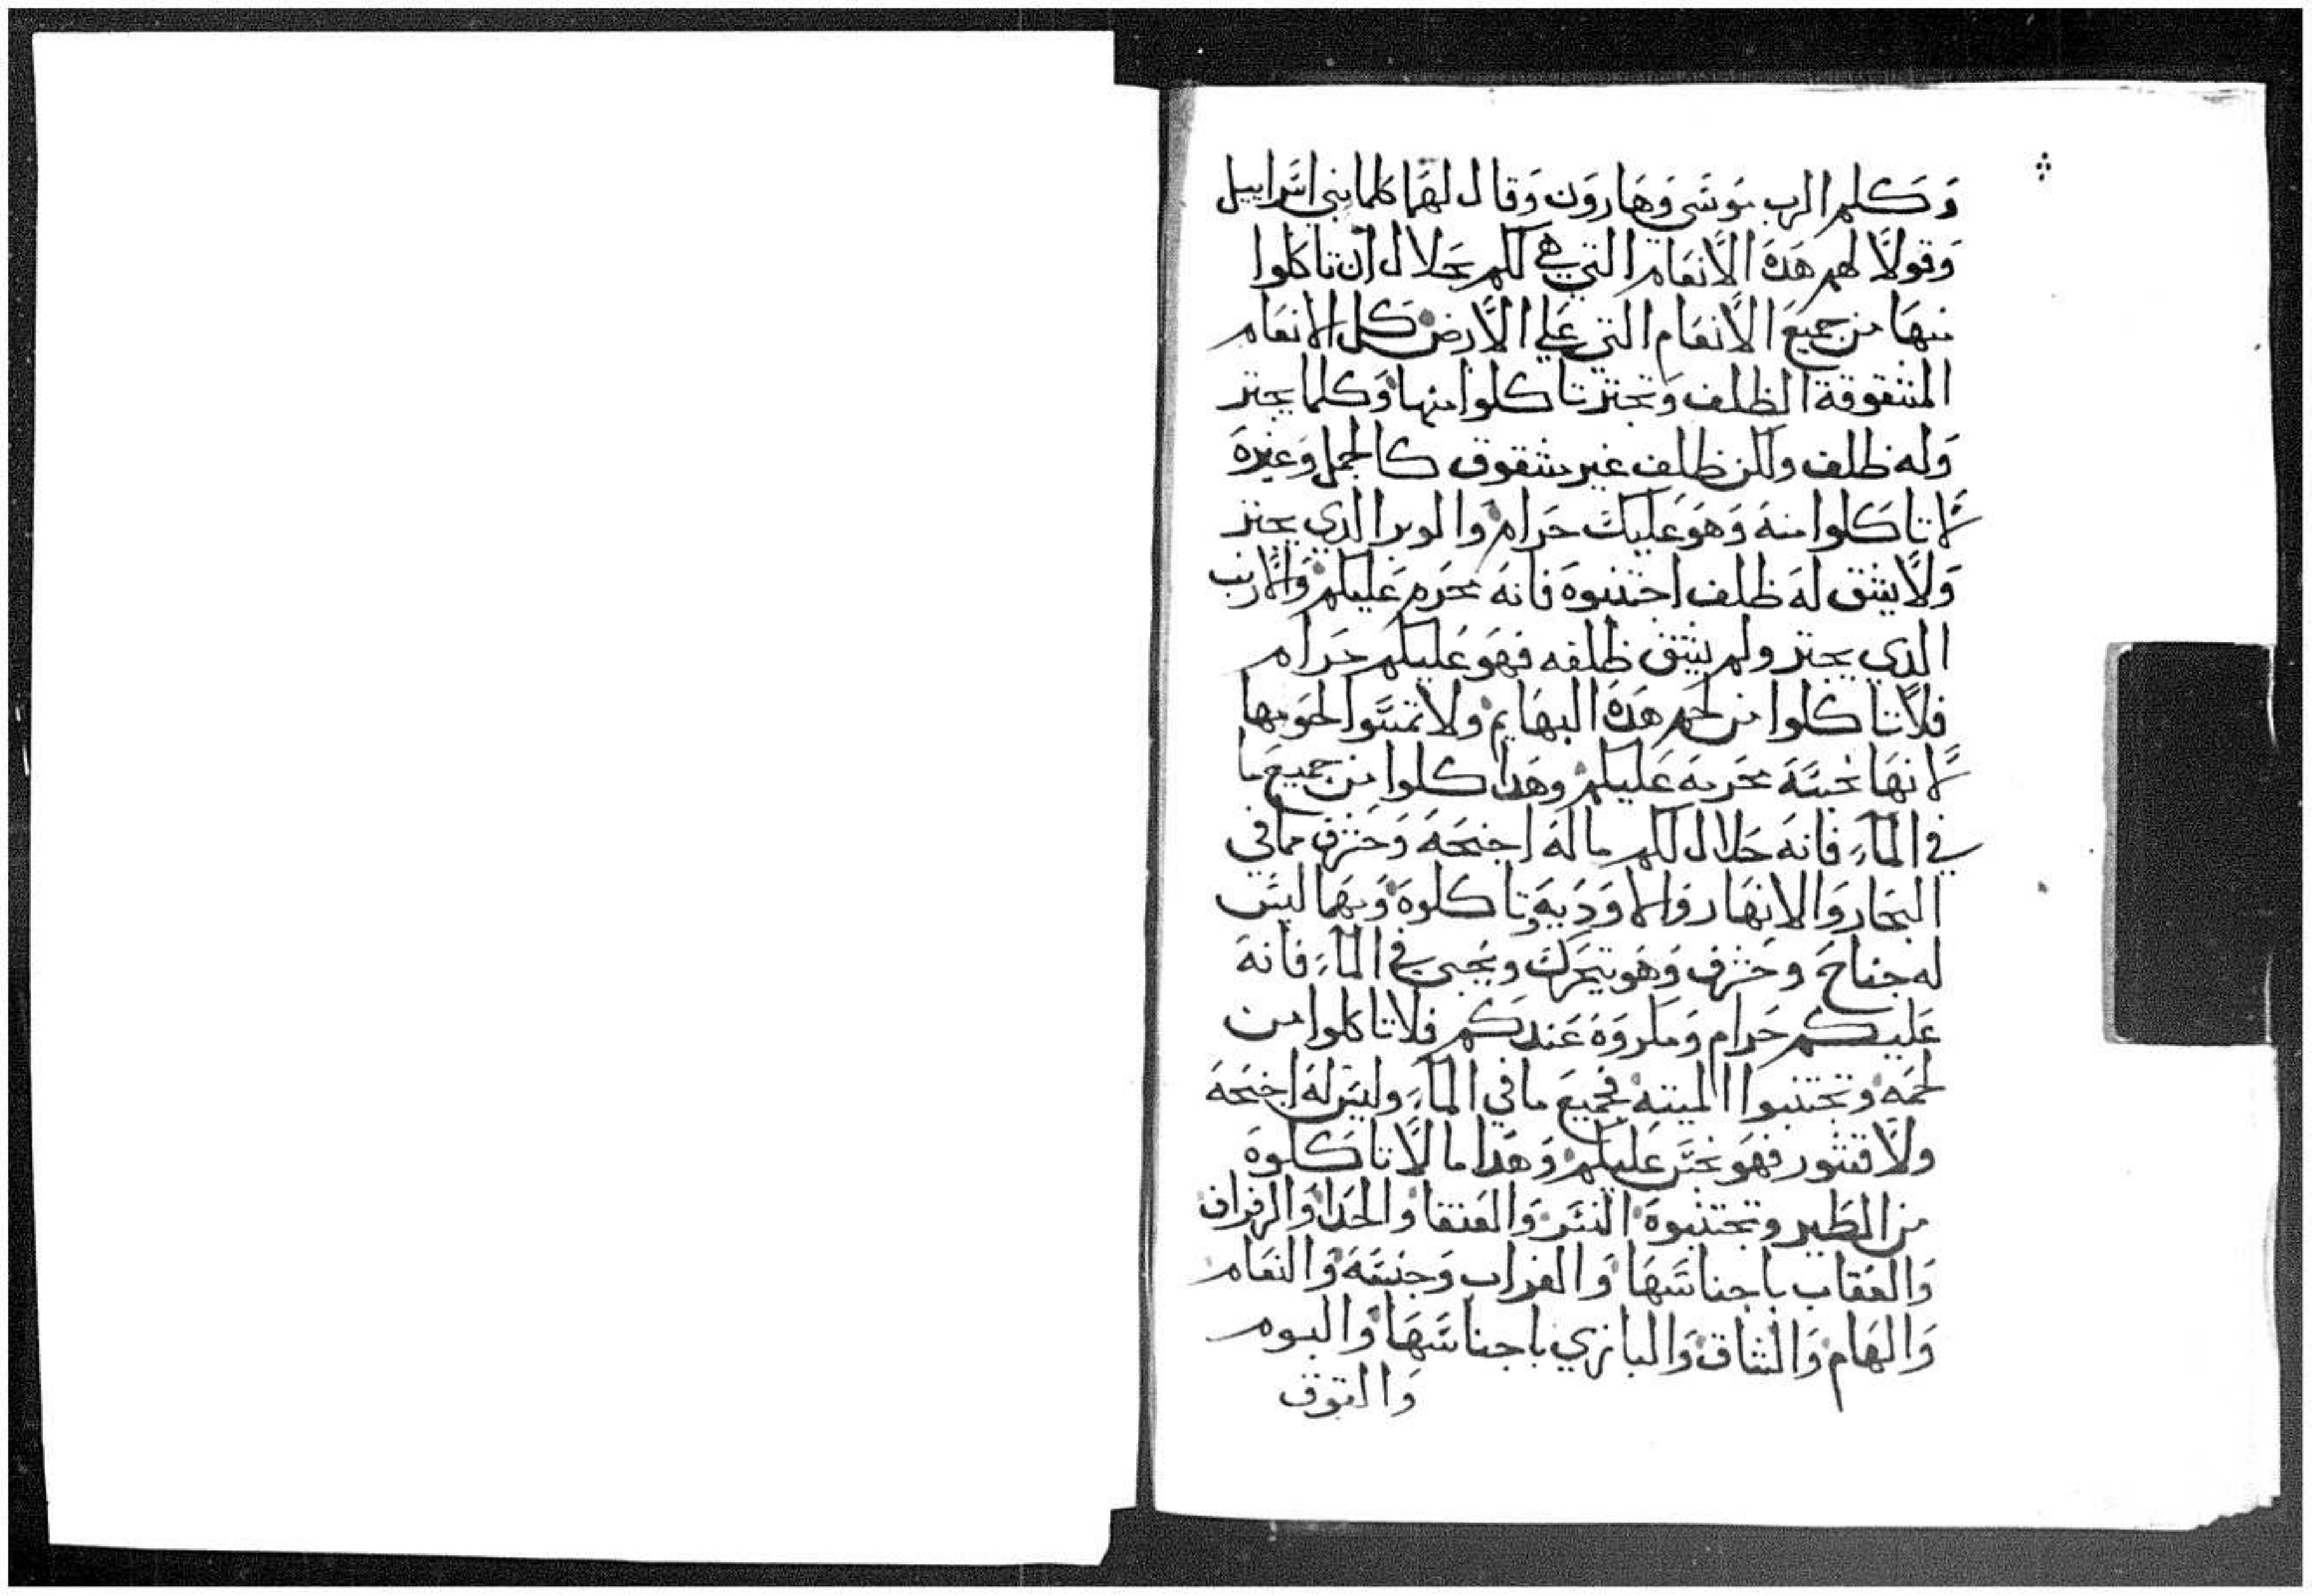 وكلم الرب موسى وهارون وقال لهما كلما بني اسراييل
وقولا لهم هده الانعام التي هي لكم حلال ان تاكلوا
منها من جميع الانعام التي علي الارض كل الانعام
المشقوقة الظلف وتجتر تاكلوا منها وكلما يجتر
وله ظلف ولكن ظلف غير مشقوق كالجمل وغيره
لا تاكلوا منه وهو عليك حرام والوبر الدي يجتر
ولا يشق له ظلف اجتنبوه فانه محرم عليكم والارنب
الدي يجتر ولم يشق ظلفه فهو عليكم حرام
فلا تاكلوا من لحم هده البهايم ولا تمسوا لحومها
لانها نجسه محرمه عليكم وهدا كلوا من جميع ما
في الماء فانه حلال لكم ما له اجنحه وحزف مما في
البحار والانهار والاوديه وتاكلوه ومهما ليس
له جناح وحزف وهو يتحرك ويحيى في الماء فانه
عليكم حرام ومكروه عندكم فلا تاكلوا من
لحمه وتجتنبوا الميته فجميع ما في الماء وليس له اجنحه
ولا قشور فهو نجس عليكم وهدا ما لا تاكلوه
من الطير وتجتنبوه النسر والعنقا والحدا والزفراف
والعقاب باجناسها والغراب وجنسه والنعام
والهام والشاق والبازي باجناسها والبوم
والقوق